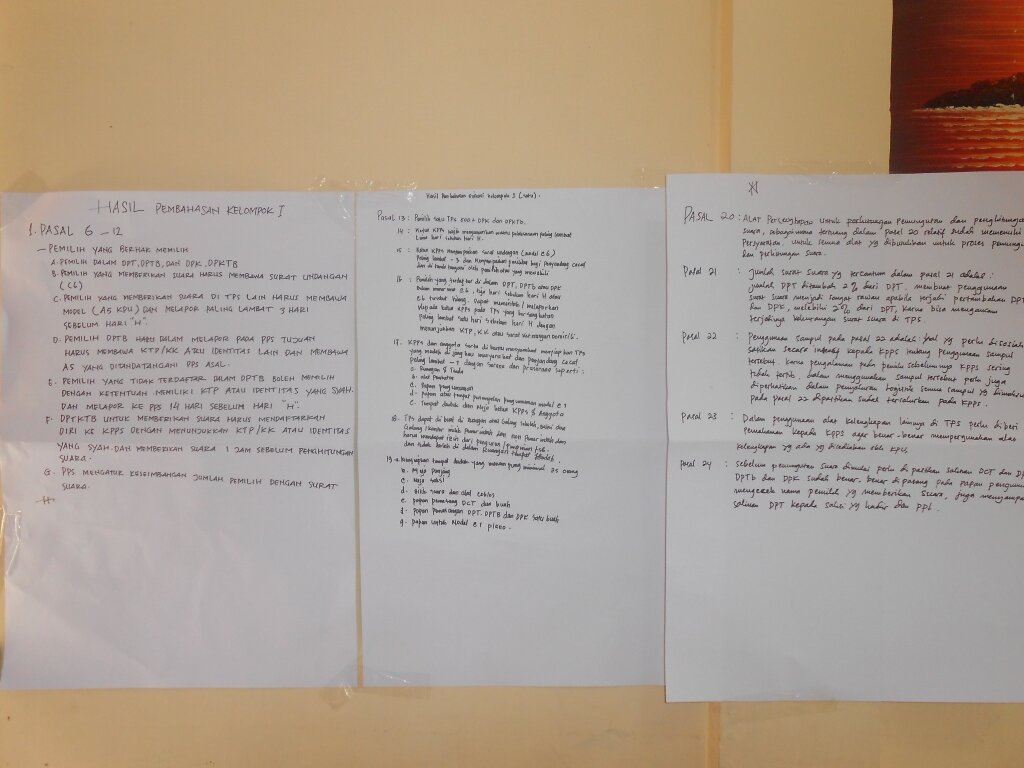 HASIL PEMBAHASAN KELOMPOK I
1. PASAL 6 - 12
- PEMILIH YANG BERHAK MEMILIH
A. PEMILIH DALAM DPT, DPTB, DAN DPK, DPKTB
B. PEMILIH YANG MEMBERIKAN SUARA HARUS MEMBAWA SURAT UNDANGAN
(C6)
C. PEMILIH YANG MEMBERIKAN SUARA DI TPS LAIN HARUS MEMBAWA
MODEL (A5 KPU) DAN MELAPOR PALING LAMBAT 3 HARI
SEBELUM HARI "H".
D. PEMILIH DPTB HARUS MELAPOR PADA PPS TUJUAN
HARUS MEMBAWA KTP/KK ATAU IDENTITAS LAIN DAN MEMBAWA
A5 YANG DITANDATANGANI PPS ASAL.
E. PEMILIH YANG TIDAK TERDAFTAR DALAM DPTB BOLEH MEMILIH
DENGAN KETENTUAN MEMILIKI KTP ATAU IDENTITAS YANG SYAH.
DAN MELAPOR KE PPS 14 HARI SEBELUM HARI "H".
F. DPTKTB UNTUK MEMBERIKAN SUARA HARUS MENDAFTARKAN
DIRI KE KPPS DENGAN MENUNJUKKAN KTP/KK ATAU IDENTITAS
YANG SYAH DAN MEMBERIKAN SUARA 1 JAM SEBELUM PENGHITUNGAN
SUARA.
G. PPS MENGATUR KESEIMBANGAN JUMLAH PEMILIH DENGAN SURAT
SUARA.
Hasil Pembahasan diskusi kelompok 1 (satu).
Pasal 13 : Pemilih satu TPS 500 + DPK dan DPKTb.
14 : Ketua KPPS wajib mengumumkan waktu pelaksanaan paling lambat
lima hari sebelum hari H.
15 : Ketua KPPS menyampaikan surat undangan (model C6)
paling lambat - 3 dan
dan di tanda tangani oleh
16 : Pemilih yang terdaftar di dalam DPT, DPTb atau DPK
belum menerima C6, tiga hari sebelum hari H atau
C6 tersebut hilang. dapat meminta / melaporkan
kepada ketua KPPS pada TPS yang bersangkutan
paling lambat satu hari sebelum hari H dengan
menunjukkan KTP, KK atau surat keterangan domisili.
17. KPPS dan anggota serta di bantu masyarakat menyiapkan TPS
yang mudah di jangkau masyarakat dan penyandang cacat
paling lambat - 1 dengan sarana dan prasarana seperti :
a. Ruangan & Tenda
b. alat pembatas
c. Papan pengumuman
d. papan atau tempat pemasangan pengumuman model C1
e. Tempat duduk dan Meja ketua KPPS & Anggota
18. TPS dapat di buat di ruangan atau Gedung Sekolah, Balai desa
Gedung /kantor milik Pemerintah dan non Pemerintah dan
harus mendapat ijin dari pengurus /Pimpinan tsb.
dan tidak boleh di dalam Ruangan tempat Ibadah
19. a. Menyiapkan tempat duduk yang memuat paling minimal 25 orang
b. Meja panjang
c. Meja saksi
d. Bilik suara dan alat coblos
e. papan pemasang DCT dan buah
f. papan Pemasangan DPT. DPTB dan DPK satu buah
g. papan untuk Model C1 plano.
PASAL 20 : ALAT Perlengkapan untuk perlindungan Pemungutan dan penghitungan
suara, sebagaimana tertuang dalam pasal 20 relatif sudah memenuhi
Persyaratan, untuk semua alat yg dibutuhkan untuk proses pemung
dan perhitungan suara.
Pasal 21 : Jumlah surat suara yg tercantum dalam pasal 21 adalah :
jumlah DPT ditambah 2% dari DPT. membuat penggunaan
surat suara menjadi sangat rawan apabila terjadi pertambahan DPT
dan DPK, melebihi 2% dari DPT, karna bisa mengancam
terjadinya kekurangan surat suara di TPS.
Pasal 22 : Penggunaan Sampul pada pasal 22 adalah hal yg perlu di sosiali
sasikan secara intensif kepada KPPS tentang penggunaan sampul
tersebut, karna pengalaman pada pemilu sebelumnya KPPS sering
tidak tertib, dalam menggunakan sampul tersebut perlu juga
diperhatikan dalam penyaluran logistik semua sampul yg dimaksud
pada pasal 22 dipastikan sudah tersalurkan pada KPPS.
Pasal 23 : Dalam penggunaan alat kelengkapan lainnya di TPS perlu diberi
Pemahaman kepada KPPS agar benar-benar mempergunakan alat
kelengkapan yg ada yg disediakan oleh KPU.
Pasal 24 : Sebelum pemungutan suara dimulai perlu di pastikan salinan DCT dan DP
DPTb dan DPK sudah benar-benar dipasang pada Papan pengumu
mengecek nama pemilih yg memberikan suara, juga menyampai
salinan DPT kepada saksi yg hadir dan PPL.